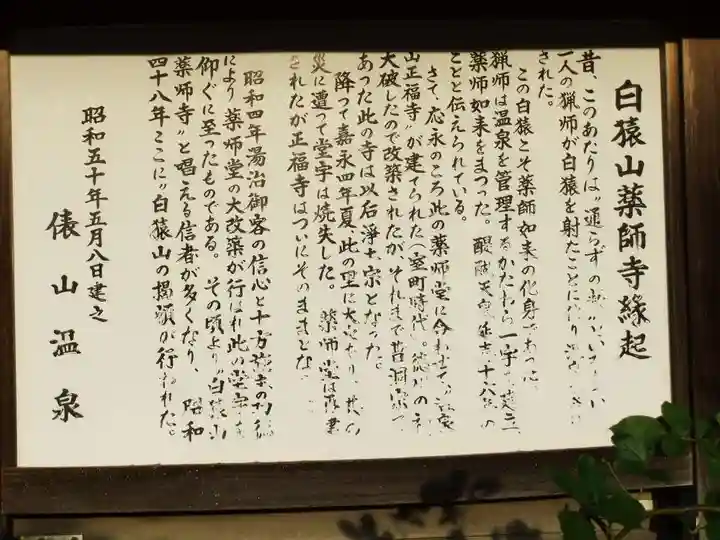 白猿山薬師寺縁起
昔、このあたりは〝通らずの
一人の猟師が白猿を射たことに
された。
この白猿こそ薬師如来の化身であった
猟師は温泉を管理するかたわら一宇を建立
薬师如来をまつった。醍醐天皇延喜十六年の
ことと伝えられている。
さて、応永のころ此の薬师堂に合わせて
山正福寺〟が建てられた(室町時代)。徳川の
大破したので改築されたが、それまで曹洞宗で
あった此の寺は以后浄土宗となった。
降って嘉永四年夏、此の里に大火あり、其の
災に遭って堂宇は焼失した。薬师堂は再業
されたが正福寺はついにそのままとな
昭和四年湯治御客の信心と十方
により薬师堂の大改築が行はれ此の堂宇を
仰ぐに至ったものである。その頃より〝白猿山
薬师寺〟と唱える信者が多くなり、昭和
四十八年ここに〝白猿山の掲額が行われた。
昭和五十年五月八日建之
俵山温泉